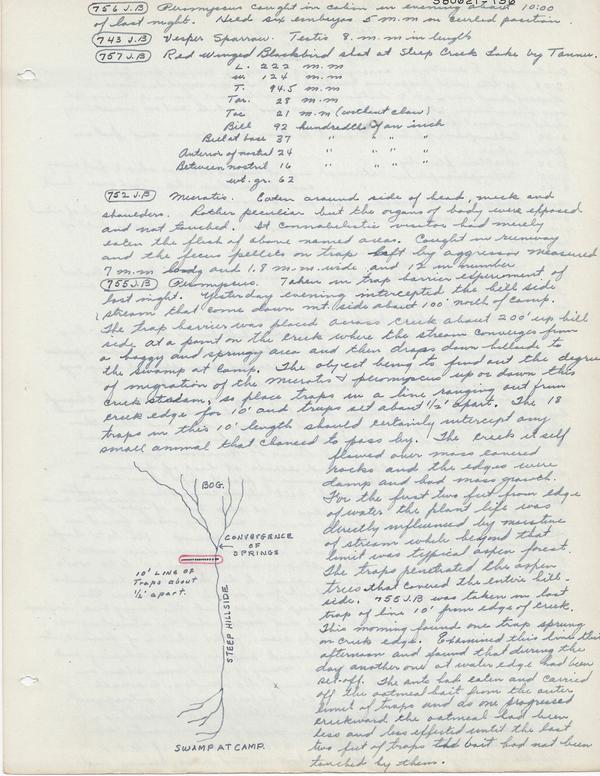 580621-156
756 J.B Peromyscus caught in cabin in evening about 10:00
of last night. Need six embryos 5 m.m in curled position.
743 J.B Vesper Sparrow. Testis 8 m.m in length
757 J.B Red Winged Blackbird shot at Steep Creek Lake by Tanner.
L. 222 m.m
w. 124 m.m
T. 94.5 m.m
Tar. 28 m.m
Toe 21 m.m (without claw)
Bill 92 hundredths of an inch
Bill at base 37 " " " "
Anterior of nostral 24 " " " "
Between nostril 16 " " " "
wt. gr. 62
752 J.B Microtis. Eaten around side of head, neck and
shoulders. Rather peculiar but the organs of body were exposed
and not touched. It cannabilistic visitor had merely
eaten the flesh of above named areas. Caught in runway
and the feces pellets on trap left by aggressor measured
7 m.m long and 1.8 m.m. wide and 12 in number
755 J.B Peromyscus. Taken in trap barrier experiment of
last night. Yesterday evening intercepted the hill side
stream that come down mt. side about 100' north of camp.
The trap barrier was placed across creek about 200' up hill
side at a point on the creek where the stream converges from
a boggy and springy area and then drops down hillside to
the swamp at camp. The object being to find out the degree
of migration of the microtis & peromyscus up or down this
creek so place traps in a line ranging out from
creek edge for 10' and traps set about 1/2' apart. The 18
traps in this 10' length should certainly intercept any
small animal that chanced to pass by. The creek itself
flowed over moss covered
rocks and the edges were
damp and had moss growth.
For the first two feet from edge
of water the plant life was
directly influenced by moisture
of stream while beyond that
limit was typical aspen forest.
The traps penetrated the aspen
trees that covered the entire hill-
side. 755 J.B was taken in last
trap of line 10' from edge of creek.
This morning found one trap sprung
on creek edge. Examined this line this
afternoon and found that during the
day another one at water edge had been
set-off. The ants had eaten and carried
off the oatmeal bait from the outer
limit of traps and as one progressed
creekward the oatmeal had been
less and less effected until the last
two feet of traps the bait had not been
touched by them.
BOG.
CONVERGENCE
OF
SPRINGS
10' LINE OF
Traps about
1/2' apart.
STEEP HILLSIDE
SWAMP AT CAMP.